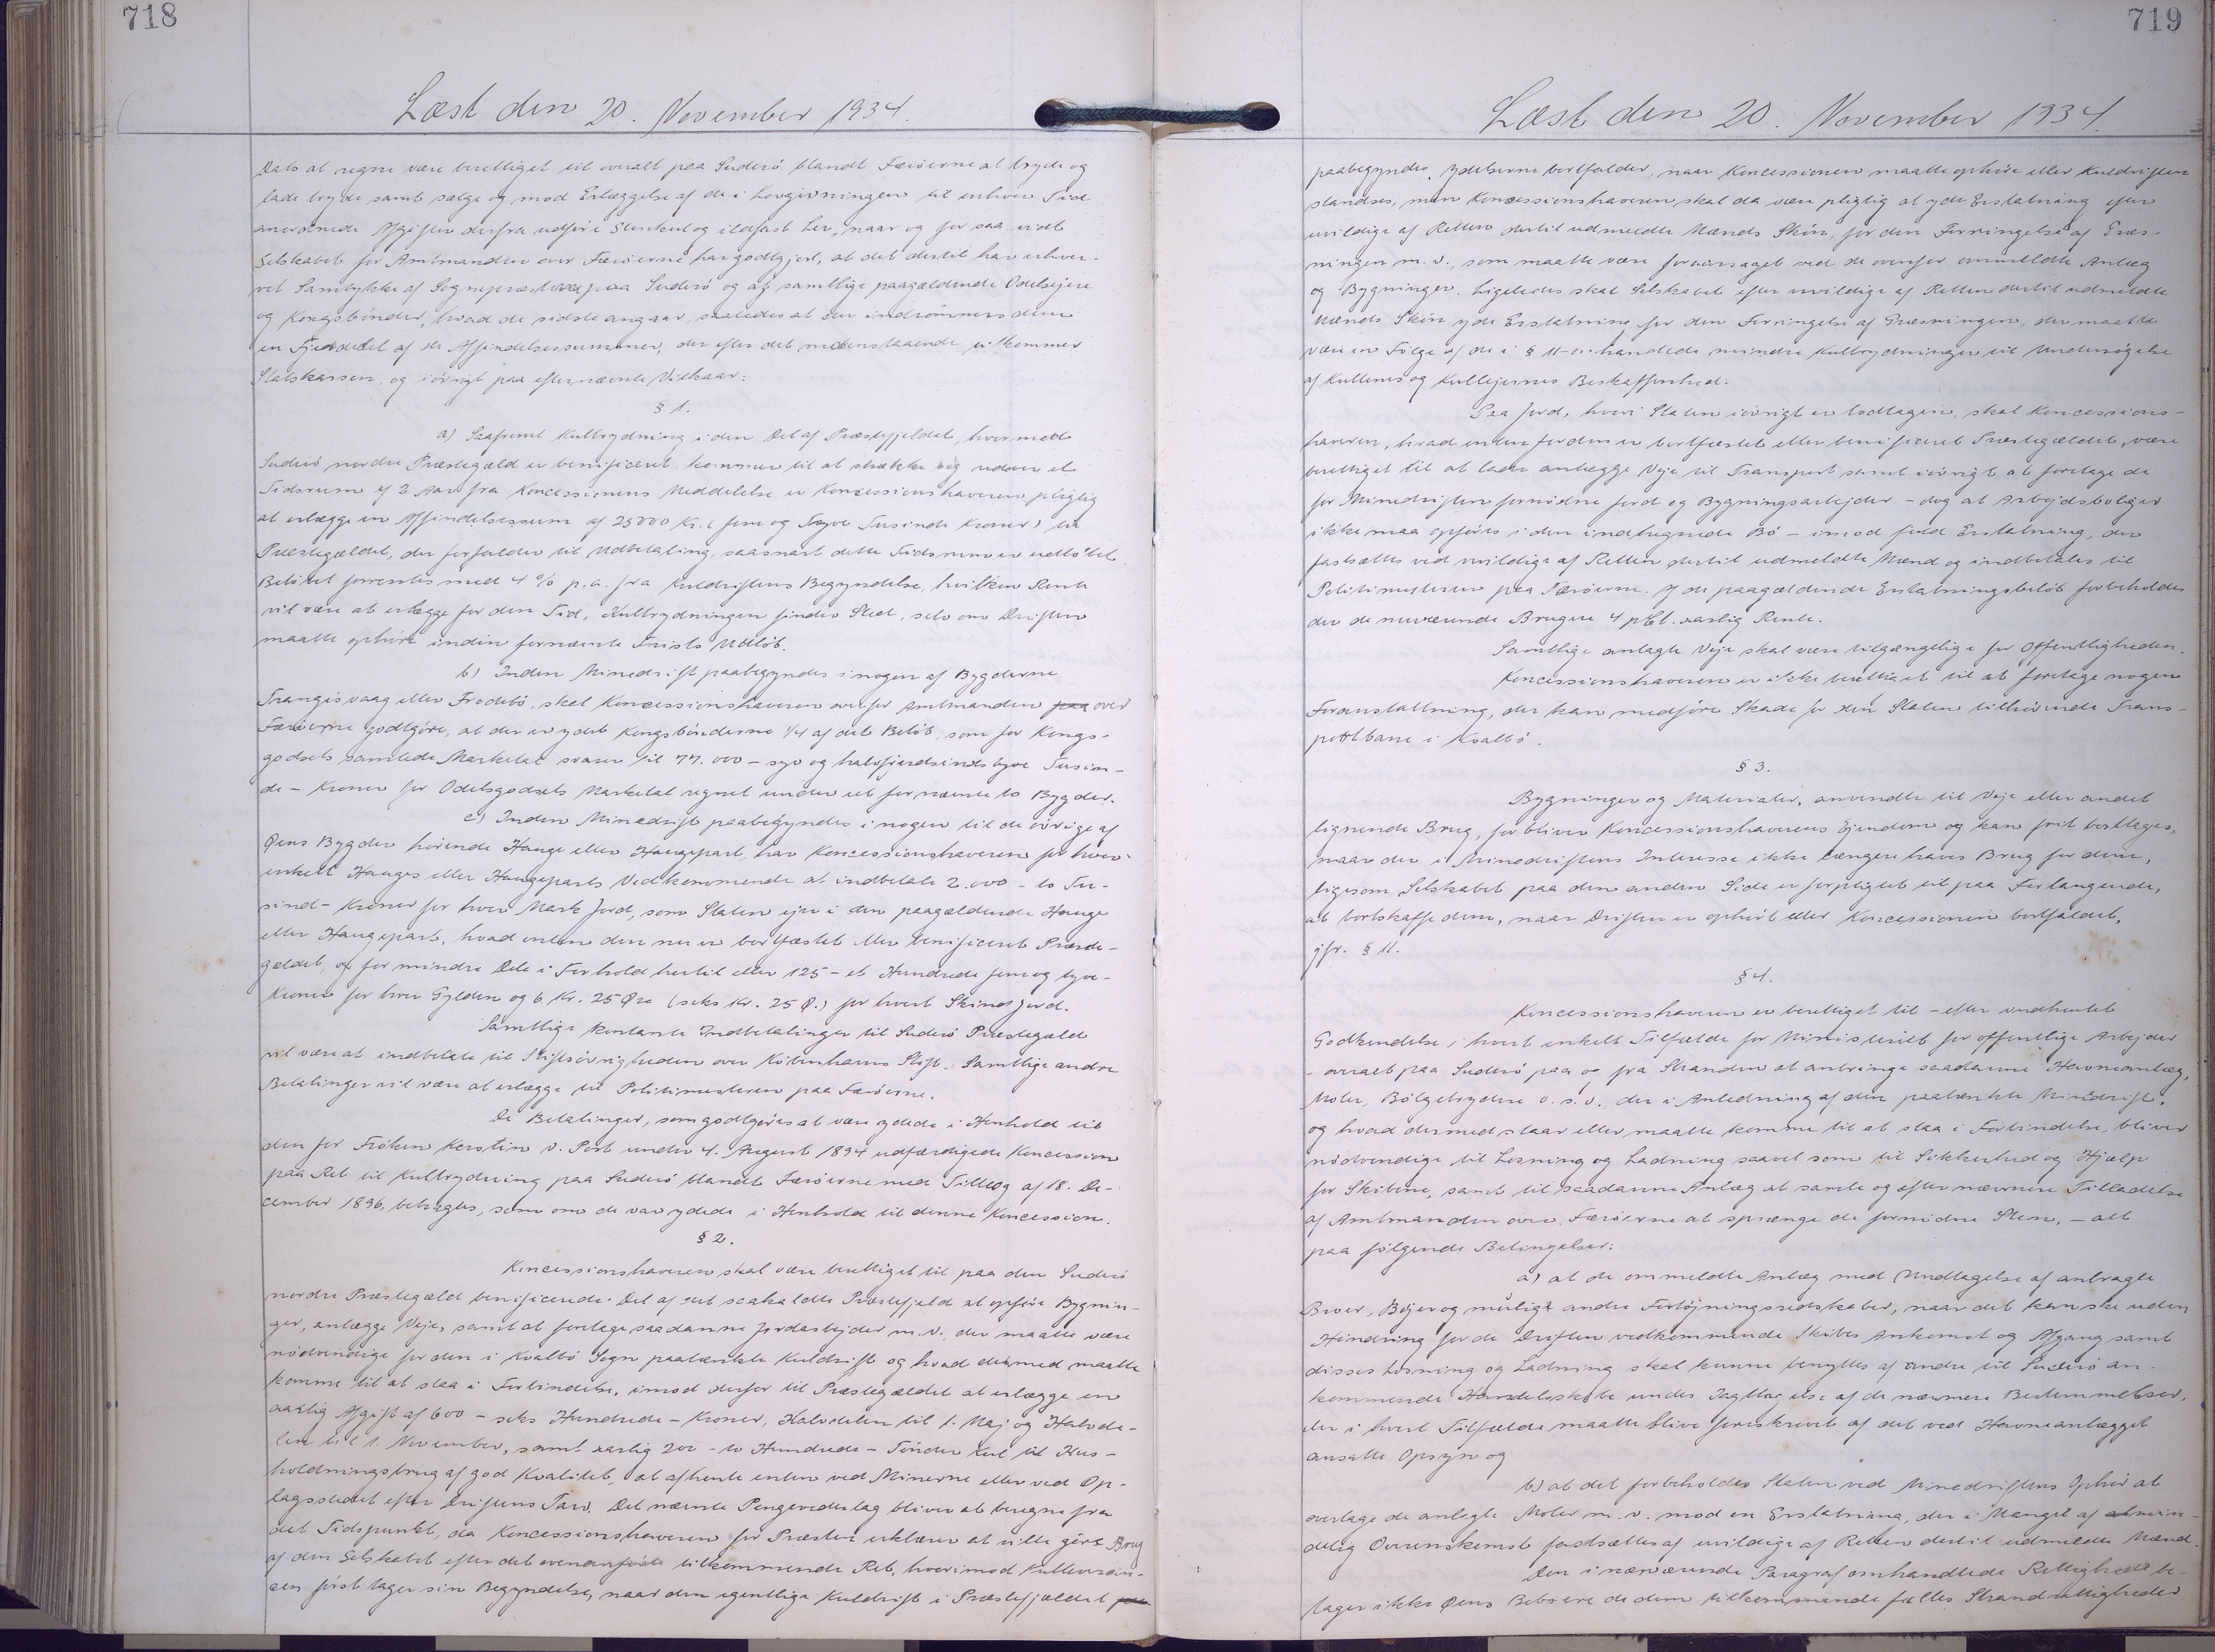 718
Læst den 20. November 1934.
Dato at regne være berettiget til overalt paa Suderö blandt Færöerne at bryde og
lade bryde samt sælge og mod Erlæggelse af de i Lovgivningen til enhver Tid
anordnede Afgifter derfra udføre Stenkul og ildfast Ler, naar og for saa vidt
Selskabet for Amtmanden over Færöerne har godtgjort, at det dertil har erhver-
vet Samtykke af Sognepræsterne paa Suderö og af samtlige paagældende Odelsejere
og Kongsbönder, hvad de sidste angaar saaledes at der indrömmes dem
en Fjerdedel af de Affindelsessummer, der efter det nedenstaaende tilkommer
Statskassen, og iövrigt paa efternævnte Vilkaar:
§ 1.
a) Saafremt Kulbrydning i den Del af Præstefjeldet, hvormed
Suderö nordre Præstegæld er beneficeret kommer til at strække sig udover et
Tidsrum af 2 Aar fra Koncessionens Meddelelse er Koncessionshaveren pligtig
at erlægge en Affindelsessum af 25000 Kr. (fem og Tyve Tusinde Kroner) til
Præstegældet, der forfalder til Udbetaling, saasnart dette Tidsrum er udlöbet.
Belöbet forrentes med 4 % p.a. fra Kuldriftens Begyndelse, hvilken Rente
vil være at erlægge for den Tid, Kulbrydningen finder Sted, selv om Driften
maatte ophöre inden fornævnte Frists Udlöb.
b) Inden Minedrift paabegyndes i nogen af Bygderne
Trangisvaag eller Frodebö, skal Koncessionshaveren overfor Amtmanden paa over
Færöerne godtgöre, at der er ydet Kongsbönderne 1/4 af det Belöb, som for Kongs-
godsets samlede Marketal svarer til 77.000 - syv og halvfjerdsindstyve Tusin-
de - Kroner for Odelsgodsets Marketal regnet under eet fornævnte to Bygder.
c) Inden Minedrift paabegyndes i nogen til de övrige af
Øens Bygder hörende Hauge eller Haugepart, har Koncessionshaveren for hver
enkelt Hauges eller Haugeparts Vedkommende at indbetale 2.000 - to Tu-
sind - Kroner for hver Mark Jord, som Staten ejer i den paagældende Hauge
eller Haugepart, hvad enten den nu er bortfæstet eller beneficeret Præste-
gældet, og for mindre Dele i Forhold hertil eller 125 - et Hundrede fem og tyve -
Kroner for hver Gylden og 6 Kr. 25 Øre (seks Kr. 25 Ø.) for hvert Skind Jord.
Samtlige kontante Indbetalinger til Suderö Præstegæld
vil være at indbetale til Stiftsövrigheden over Köbenhavns Stift. Samtlige andre
Betalinger vil være at erlægge til Politimesteren paa Færöerne.
De Betalinger, som godtgöres at være ydede i Henhold til
den for Fröken Kerstin v. Post under 4. August 1894 udfærdigede Koncession
paa Ret til Kulbrydning paa Suderö blandt Færöerne med Tillæg af 18. De-
cember 1896, betragtes, som om de var ydede i Henhold til denne Koncession.
§ 2.
Koncessionshaveren skal være berettiget til paa den Suderö
nordre Præstegæld beneficerede Del af det saakaldte Præstefjeld at opföre Bygnin-
ger, anlægge Veje, samt at foretage saadanne Jordarbejder m.v., der maatte være
nödvendige for den i Kvalbö Sogn paatænkte Kuldrift og hvad dermed maatte
komme til at staa i Forbindelse, imod derfor til Præstegældet at erlægge en
aarlig Afgift af 600 - seks Hundrede - Kroner, Halvdelen til 1. Maj og Halvde-
len til 1. November, samt aarlig 200 - to Hundrede - Tönder Kul til Hus-
holdningsbrug af god Kvalitet, at afhente enten ved Minerne eller ved Op-
lagsstedet efter Driftens Tarv. Det nævnte Pengevederlag bliver at beregne fra
det Tidspunkt, da Koncessionshaveren for Præsten erklærer at ville göre Brug
af den Selskabet efter det ovenanförte tilkommende Ret, hvorimod Kulleveran-
cen först tager sin Begyndelse, naar den egentlige Kuldrift i Præstefjeldet paa
719
Læst den 20. November 1934.
paabegyndes. Ydelserne bortfalder, naar Koncessionen maatte ophöre eller Kuldriften
standses, men Koncessionshaveren skal da være pligtig at yde Erstatning efter
uvildige af Retten dertil udmeldte Mænds Skön, for den Forringelse af Græs-
ningen m.v., som maatte være foraarsaget ved de ovenfor ommeldte Anlæg
og Bygninger. Ligeledes skal Selskabet efter uvildige af Retten dertil udmeldte
Mænds Skön yde Erstatning for den Forringelse af Græsningen, der maatte
være en Fölge af de i § 11 omhandlede mindre Kulbrydninger til Undersögelse
af Kullenes og Kullejernes Beskaffenhed.
Paa Jord, hvori Staten iövrigt er lodtagen, skal Koncessions-
haveren, hvad enten Jorden er bortfæstet eller beneficeret Præstegældet, være
berettiget til at lade anlægge Veje til Transport samt iövrigt at foretage de
for Minedriften fornödne Jord og Bygningsarbejder - dog at Arbejdsboliger
ikke maa opföres i den indhegnede Bö - imod fuld Erstatning, der
fastsættes ved uvildige af Retten dertil udmeldte Mænd og indbetales til
Politimesteren paa Færöerne. Af de paagældende Erstatningsbelöb forbeholdes
der de nuværende Brugere 4 pCt. aarlig Rente.
Samtlige anlagte Veje skal være tilgængelige for Offentligheden.
Koncessionshaveren er ikke berettiget til at foretage nogen
Foranstaltning, der kan medföre Skade for den Staten tilhörende Trans-
portbane i Kvalbö.
§ 3.
Bygninger og Materialer, anvendte til Veje eller andet
lignende Brug, forbliver Koncessionshaverens Ejendom og kan frit borttages,
naar der i Minedriftens Interesse ikke længere haves Brug for dem,
ligesom Selskabet paa den anden Side er forpligtet til paa Forlangende,
at bortskaffe dem, naar Driften er ophört eller Koncessionen bortfaldet,
jfr. § 11.
§ 4.
Koncessionshaveren er berettiget til - efter indhentet
Godkendelse i hvert enkelt Tilfælde for Ministeriet for offentlige Arbejder
- overalt paa Suderö paa og fra Stranden at anbringe saadanne Havneanlæg,
Moler, Bölgebrydere o.s.v., der i Anledning af den paatænkte Minedrift,
og hvad dermed staar eller maatte komme til at staa i Forbindelse, bliver
nödvendige til Losning og Ladning saavel som til Sikkerhed og Hjælp
for Skibene, samt til saadanne Anlæg at samle og efter nærmere Tilladelse
af Amtmanden over Færöerne at sprænge de fornödne Sten, - alt
paa fölgende Betingelser:
a) at de ommeldte Anlæg med Undtagelse af anbragte
Broer, Böjer og muligt andre Fortöjningsredskaber, naar det kan ske uden
Hindring for de Driften vedkommende Skibes Ankomst og Afgang samt
disses Losning og Ladning skal kunne benyttes af andre til Suderö an-
kommende Handelsskibe under Iagttagelse af de nærmere Bestemmelser,
der i hvert Tilfælde maatte blive foreskrevet af det ved Havneanlægget
ansatte Opsyn og
b) at det forbeholdes Staten ved Minedriftens Ophör at
overtage de anlagte Moler m.v. mod en Erstatning, der i Mangel af almin-
delig Overenskomst fastsættes af uvildige af Retten dertil udmeldte Mænd.
Den i nærværende Paragraf omhandlede Rettighed be-
tager ikke Øens Beboere de dem tilkommende fælles Strandrettigheder